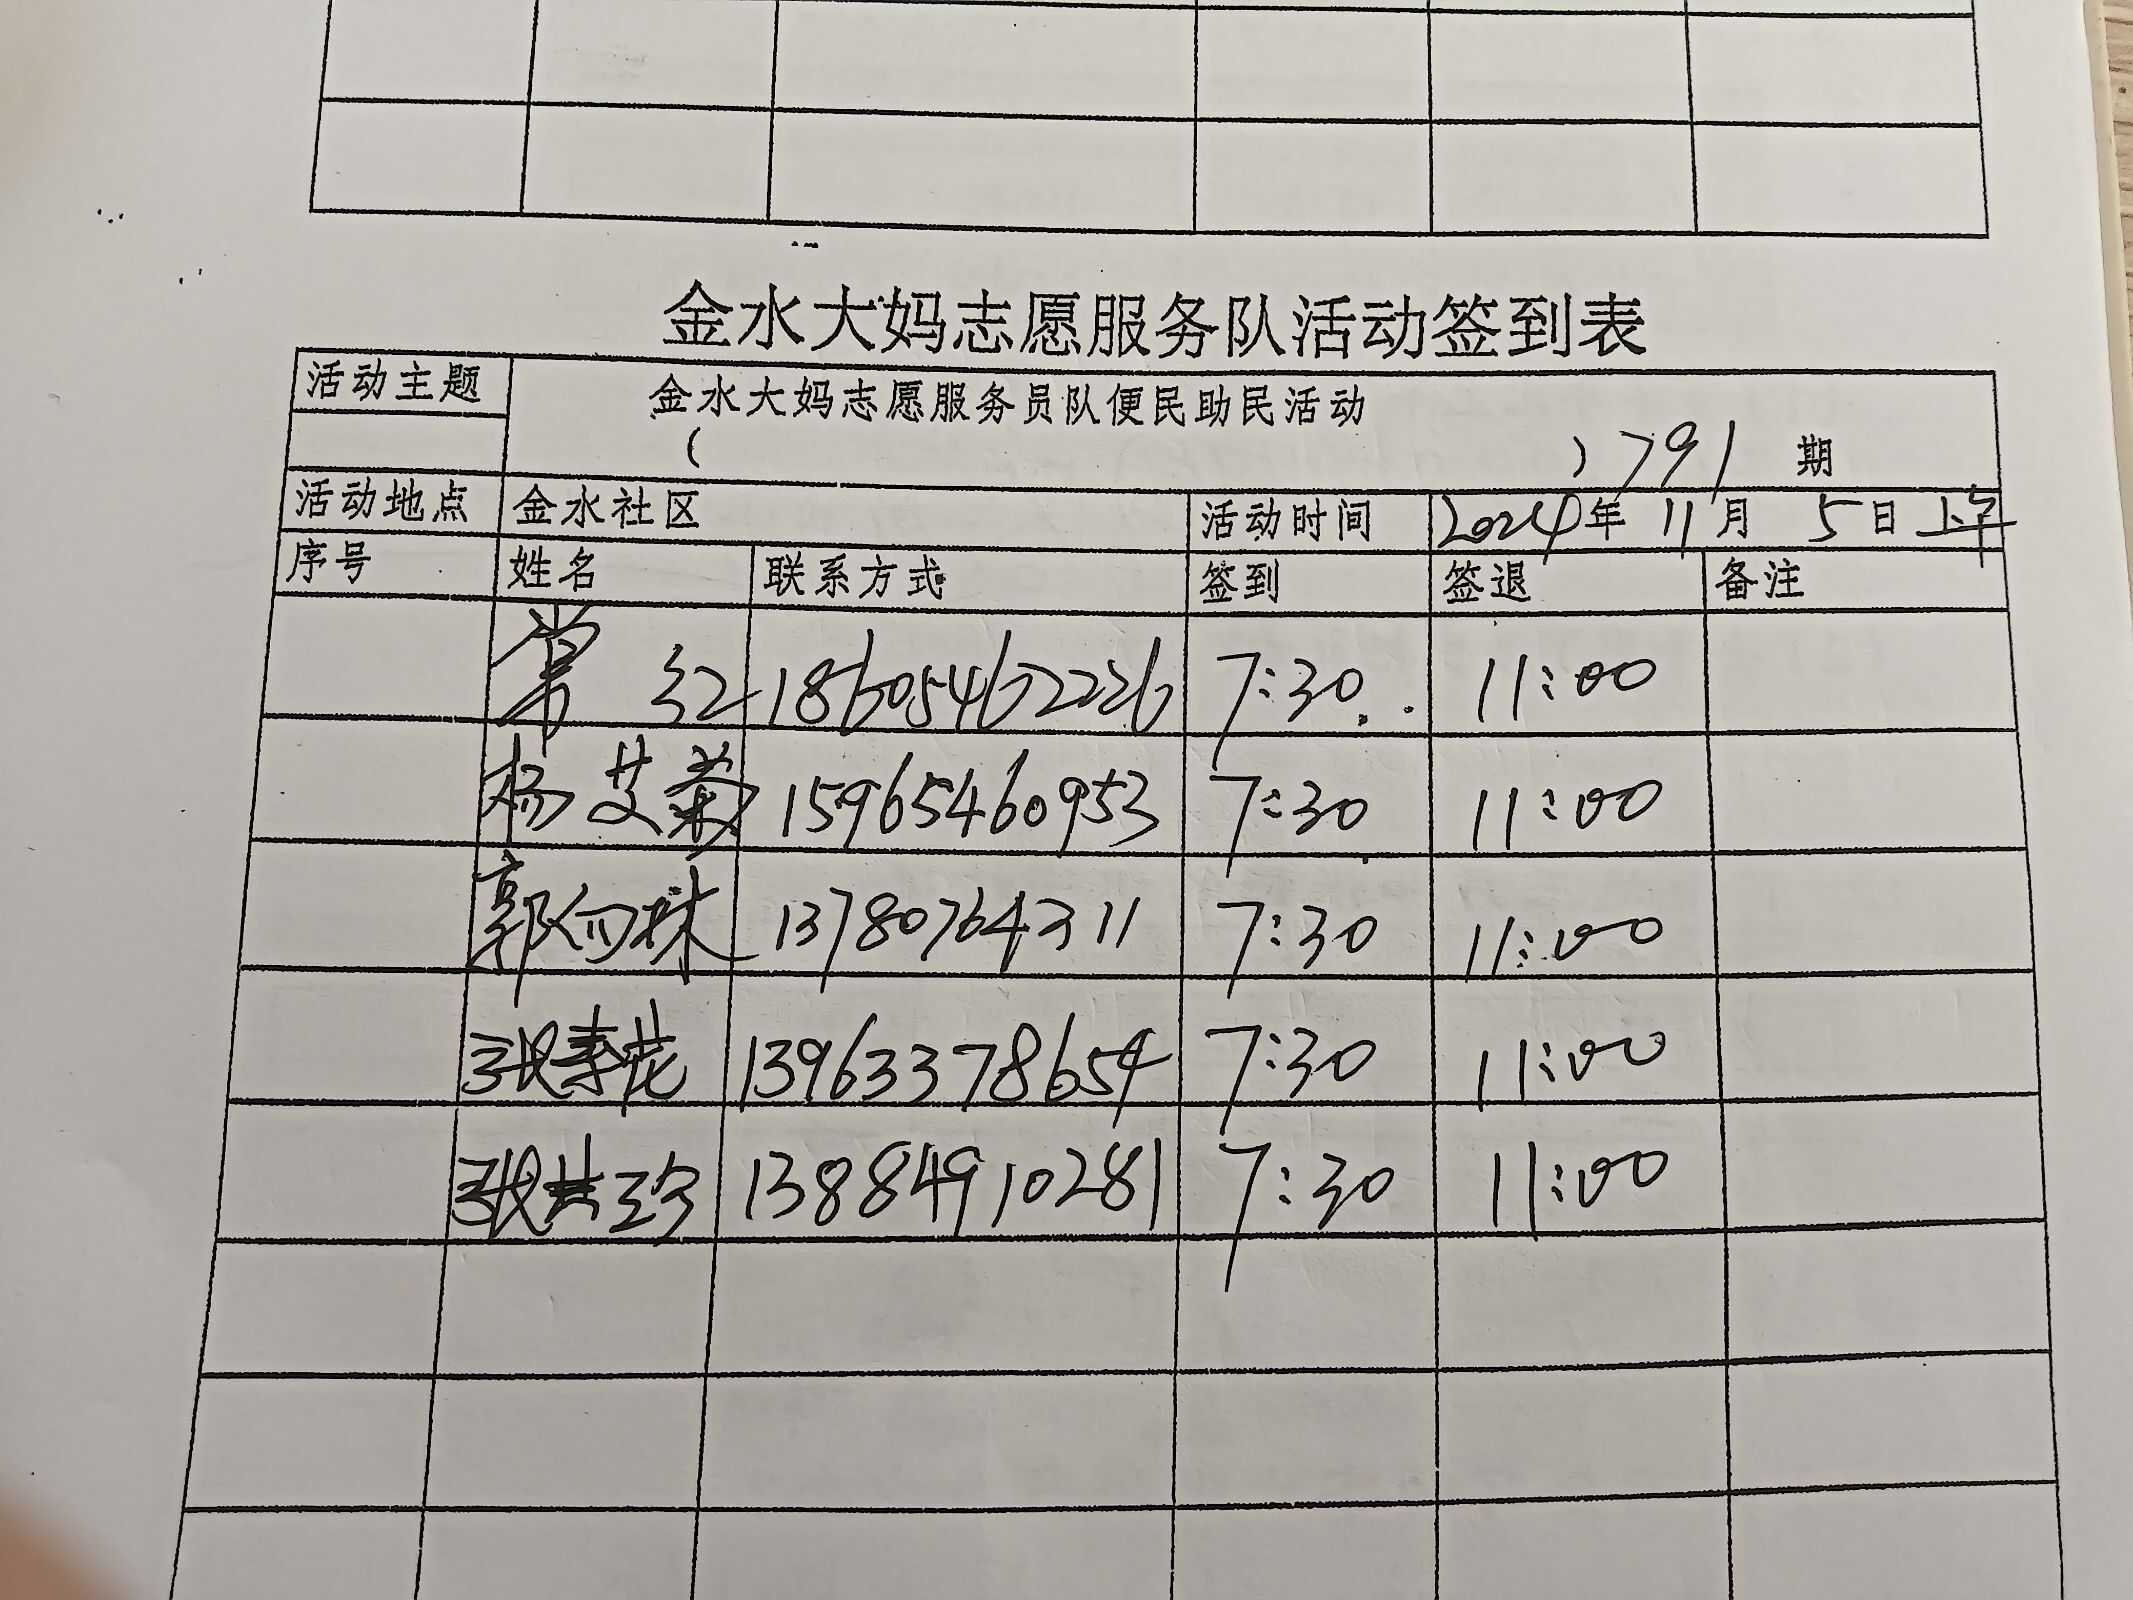 金水大妈志愿服务队活动签到表
活动主题 金水大妈志愿服务员队便民助民活动
( ) 791 期
活动地点 金水社区 活动时间 2024年 11月 5日 上午
序号 姓名 联系方式 签到 签退 备注
常红 18605462226 7:30 11:00
杨艾菊 15965460953 7:30 11:00
郭向珠 13780764311 7:30 11:00
张春花 13963378654 7:30 11:00
张共珍 13884910281 7:30 11:00